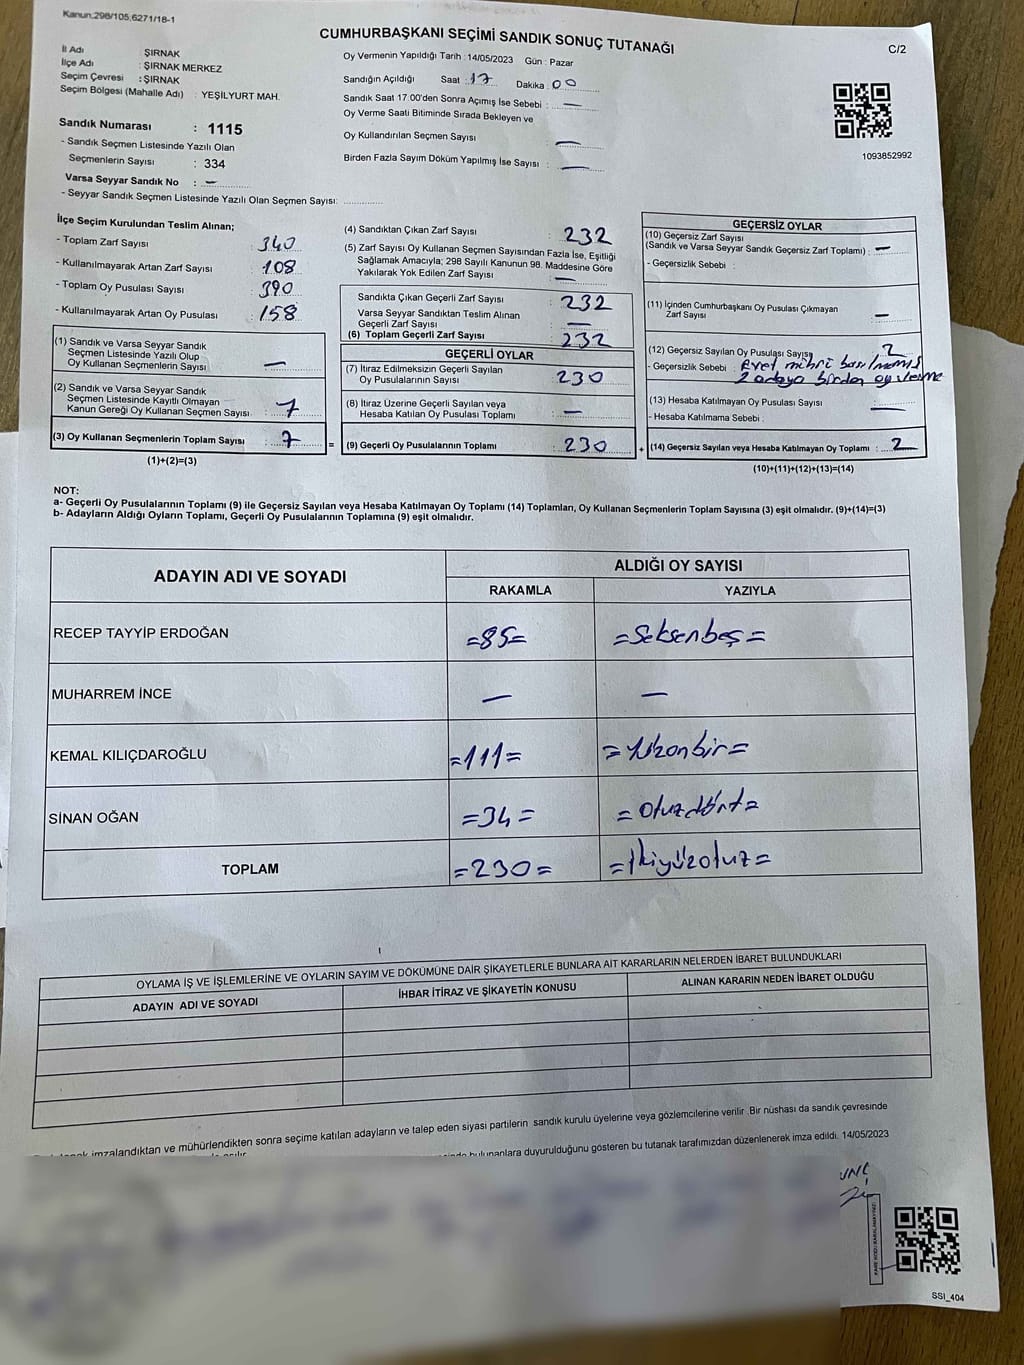 Kanun:298/105,6271/18-1
CUMHURBAŞKANI SEÇİMİ SANDIK SONUÇ TUTANAĞI
C/2
İl Adı ŞIRNAK
İlçe Adı : ŞIRNAK MERKEZ
Seçim Çevresi : ŞIRNAK
Seçim Bölgesi (Mahalle Adı) : YEŞİLYURT MAH.
Sandık Numarası : 1115
- Sandık Seçmen Listesinde Yazılı Olan
Seçmenlerin Sayısı : 334
Varsa Seyyar Sandık No : —
- Seyyar Sandık Seçmen Listesinde Yazılı Olan Seçmen Sayısı:
Oy Vermenin Yapıldığı Tarih : 14/05/2023 Gün : Pazar
Sandığın Açıldığı Saat : 17 Dakika : 00
Sandık Saat 17.00'den Sonra Açılmış İse Sebebi : —
Oy Verme Saati Bitiminde Sırada Bekleyen ve
Oy Kullandırılan Seçmen Sayısı —
Birden Fazla Sayım Döküm Yapılmış İse Sayısı : —
1093852992
İlçe Seçim Kurulundan Teslim Alınan;
- Toplam Zarf Sayısı : 340
- Kullanılmayarak Artan Zarf Sayısı : 108
- Toplam Oy Pusulası Sayısı : 390
- Kullanılmayarak Artan Oy Pusulası : 158
(1) Sandık ve Varsa Seyyar Sandık
Seçmen Listesinde Yazılı Olup
Oy Kullanan Seçmenlerin Sayısı : —
(2) Sandık ve Varsa Seyyar Sandık
Seçmen Listesinde Kayıtlı Olmayan
Kanun Gereği Oy Kullanan Seçmen Sayısı : 7
(3) Oy Kullanan Seçmenlerin Toplam Sayısı : 7 =
(1)+(2)=(3)
(4) Sandıktan Çıkan Zarf Sayısı : 232
(5) Zarf Sayısı Oy Kullanan Seçmen Sayısından Fazla İse, Eşitliği
Sağlamak Amacıyla; 298 Sayılı Kanunun 98. Maddesine Göre
Yakılarak Yok Edilen Zarf Sayısı : —
Sandıkta Çıkan Geçerli Zarf Sayısı : 232
Varsa Seyyar Sandıktan Teslim Alınan
Geçerli Zarf Sayısı : —
(6) Toplam Geçerli Zarf Sayısı : 232
GEÇERLİ OYLAR
(7) İtiraz Edilmeksizin Geçerli Sayılan
Oy Pusulalarının Sayısı : 230
(8) İtiraz Üzerine Geçerli Sayılan veya
Hesaba Katılan Oy Pusulası Toplamı : —
(9) Geçerli Oy Pusulalarının Toplamı : 230 +
GEÇERSİZ OYLAR
(10) Geçersiz Zarf Sayısı
(Sandık ve Varsa Seyyar Sandık Geçersiz Zarf Toplamı) : —
- Geçersizlik Sebebi :
(11) İçinden Cumhurbaşkanı Oy Pusulası Çıkmayan
Zarf Sayısı : —
(12) Geçersiz Sayılan Oy Pusulası Sayısı 2
- Geçersizlik Sebebi : Evet mührü basılmamış
2 adaya birden oy verme
(13) Hesaba Katılmayan Oy Pusulası Sayısı : —
- Hesaba Katılmama Sebebi :
(14) Geçersiz Sayılan veya Hesaba Katılmayan Oy Toplamı : 2
(10)+(11)+(12)+(13)=(14)
NOT:
a- Geçerli Oy Pusulalarının Toplamı (9) ile Geçersiz Sayılan veya Hesaba Katılmayan Oy Toplamı (14) Toplamları, Oy Kullanan Seçmenlerin Toplam Sayısına (3) eşit olmalıdır. (9)+(14)=(3)
b- Adayların Aldığı Oyların Toplamı, Geçerli Oy Pusulalarının Toplamına (9) eşit olmalıdır.
ADAYIN ADI VE SOYADI
ALDIĞI OY SAYISI
RAKAMLA YAZIYLA
RECEP TAYYİP ERDOĞAN =85= =Seksenbeş=
MUHARREM İNCE — —
KEMAL KILIÇDAROĞLU =111= =Yüzonbir=
SİNAN OĞAN =34= =Otuzdört=
TOPLAM =230= =İkiyüzotuz=
OYLAMA İŞ VE İŞLEMLERİNE VE OYLARIN SAYIM VE DÖKÜMÜNE DAİR ŞİKAYETLERLE BUNLARA AİT KARARLARIN NELERDEN İBARET BULUNDUKLARI
ADAYIN ADI VE SOYADI İHBAR İTİRAZ VE ŞİKAYETİN KONUSU ALINAN KARARIN NEDEN İBARET OLDUĞU
imzalandıktan ve mühürlendikten sonra seçime katılan adayların ve talep eden siyasi partilerin sandık kurulu üyelerine veya gözlemcilerine verilir. Bir nüshası da sandık çevresinde
bulunanlara duyurulduğunu gösteren bu tutanak tarafımızdan düzenlenerek imza edildi. 14/05/2023
SSI_404